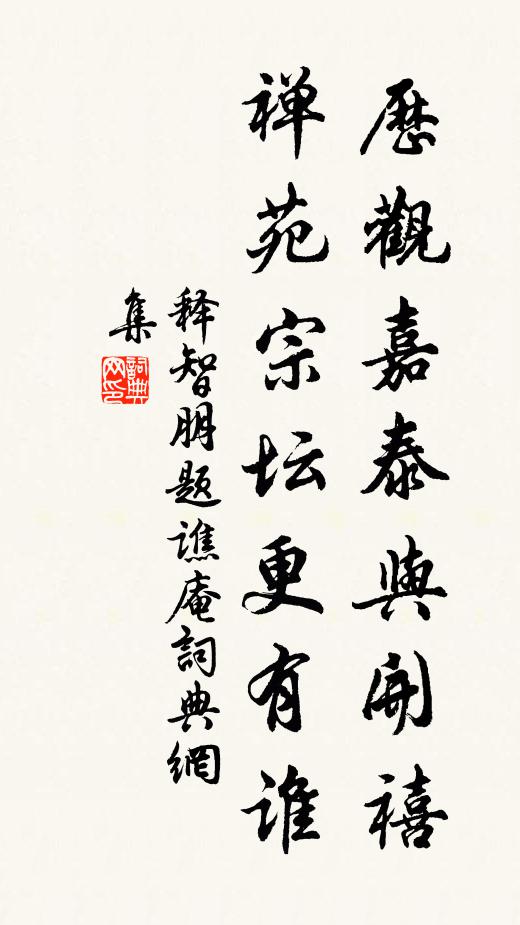 歷觀嘉泰與開禧
禅苑宗坛更有谁
释智朋題譙庵詞典網
集
詞典网印